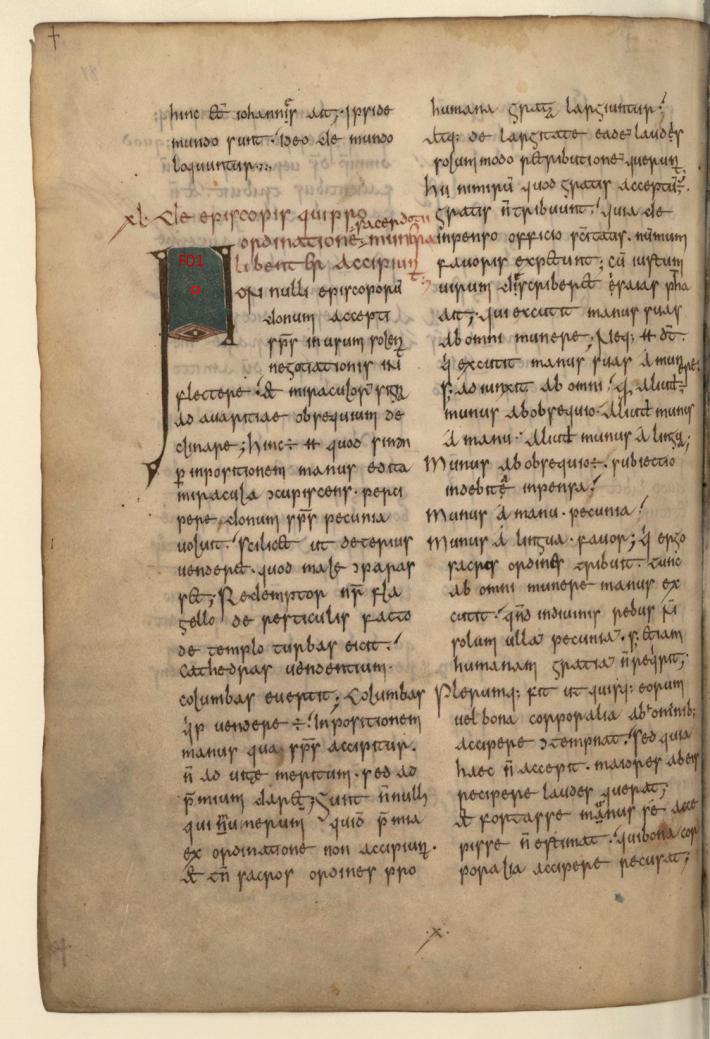 hinc & iohannis ait; ipside
mundo sunt. ideo de mundo
loquuntur;
xl. de episcopis qui pro sacerdotū
ordinatione munera
libent̄ accipiunt;
F01
Non nulli episcoporū
donum accepti
sp̄s in usum solent
negotiationis in
flectere. & miraculorū signa
ad auaritiae obsequium de
clinare; hinc ÷ quod simon
p inpositionem manus edita
miracula ɔcupiscens. perci
pere donum sp̄s pecunia
uoluit. scilic& ut deterius
uender&. quod male ɔparas
s&; Redemptor nr̄ fla
gello de resticulis facto
de templo turbas eicit.
cathedras uendentium
columbas euertit; Columbas
uendere ÷ inpositionem
manus qua sp̄s accipitur.
n̄ ad uitę meritum. sed ad
p̄mium dar&; Sunt n̄nulli
qui numerum quidē p̄mia
ex ordinatione non accipiunt.
& tn̄ sacros ordines pro
humana gratia largiuntur;
atq: de largitate eadē laudes
solum modo r&ributionē querunt;
hii nimirū quod gratis acceptū.
gratis n̄ tribuunt. quia de
inpenso officio sc̄itatis. nūmum
fauoris expetunt; cū iustum
uirum describer& esaias pha
ait; qui excutit manus suas
ab omni munere; Neq: dt̄.
q excutit manus suas a munere
s; adiunxit ab omni. q aliud
munus abobsequio. aliud munus
a manu. aliud munus a lingua;
Munus ab obsequio ÷. subiectio
indebitę inpensa;
Munus a manu. pecunia;
Munus a lingua. fauor; q ergo
sacros ordines tribuit. tunc
ab omni munere manus ex
cutit. qn̄do indiuinis rebus n̄
solum ulla pecunia. s; etiam
humanam gratia n̄ reqrit;
Plerumq; fit ut quisq; eorum
uel bona corporalia ab ominib;
accipere ɔtempnat. sed quia
haec n̄ accepit. maiores abeis
recipere laudes querat;
& fortasse manus se acce
pisse n̄ estimat. quibona cor
poralia accipere recusat;
x